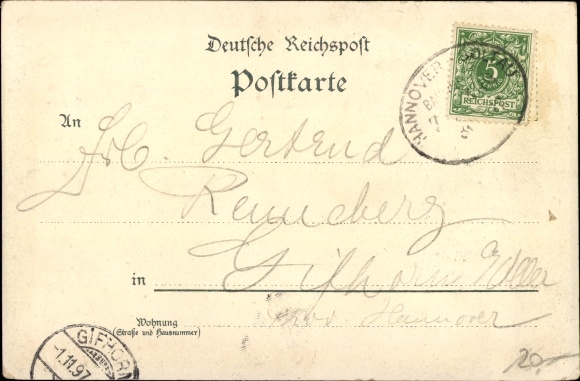 Deutsche Reichspost
Postkarte
5
REICHSPOST
HANNOVER
An Frl. Gertrud
Renneberg
in Gifhorn
Wohnung
(Straße und Hausnummer)
Prov. Hannover
GIFHORN
1.11.97
20,-